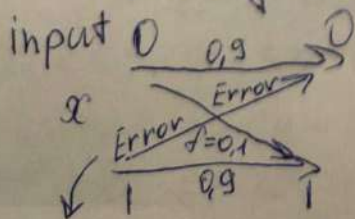 input 0 0,9 0
x Error Error
f=0,1
1 0,9 1